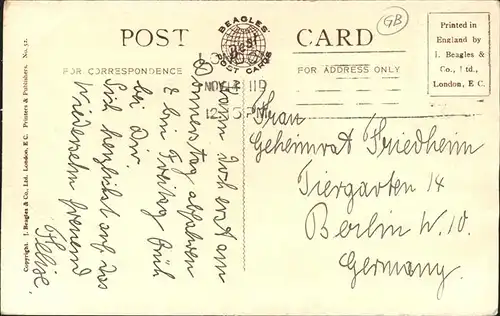 GB
BEAGLES'
BEST
POST CARDS
POST CARD
Printed in
England by
J. Beagles &
Co., Ltd.,
London, E C.
FOR CORRESPONDENCE
FOR ADDRESS ONLY
12. PM
Copyright. J. Beagles & Co., Ltd. London, E C. Printers & Publishers. No. 52.
Kann doch erst am
Donnerstag abfahren
& bin Freitag früh
bei Dir.
Sich herzlichst auf das
Wiedersehn freuend
Frau
Geheimrat Friedheim
Tiergarten 14
Berlin W. 10.
Germany.